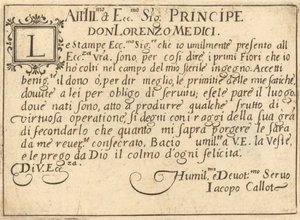 All Ill.mo et Ecc.mo Sig. PRINCIPE
DON LORENZO MEDICI.
Le Stampe Ecc.mo Sig. ch'io umilmente presento all
Ecc. Vra. sono, per cosi dire i primi Fiori che io
ho colti nel campo del mio sterile ingegno. Accetti
benig.te il dono, ò per dir meglio, le primitie delle mie fatiche,
dovute a lei per obligo di servitu; e se le pare il luogo
dove nati sono, atto à produrre qualche frutto di
virtuosa operatione, si degni con i raggi della sua gra
di fecondarlo che quanto mi sapra porgere le sara
da me reuer.te consecrato. Bacio umil.te a V.E. la Veste,
e le prego da Dio il colmo d'ogni felicità.
Di V. Ecc.za
Humil.mo e Deuot.mo Seruo
Iacopo Callot